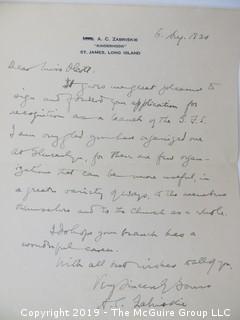 6 Aug. 1934
Mrs. A. C. Zabriskie
"Kinderhook"
St. James, Long Island
Dear Miss
It gives me great pleasure to
sign and forward your application for
recognition as a branch of the G. F. S.
I am so glad you have organized one
at for there are few organ-
izations that can be more useful, in
a greater variety of ways, to the members
themselves and to the Church as a whole.
I do hope your branch has a
wonderful career.
With all best wishes to all of you,
Very Sincerely Yours
A. C. Zabriskie
Copyright 2019 - www.timequestion.com